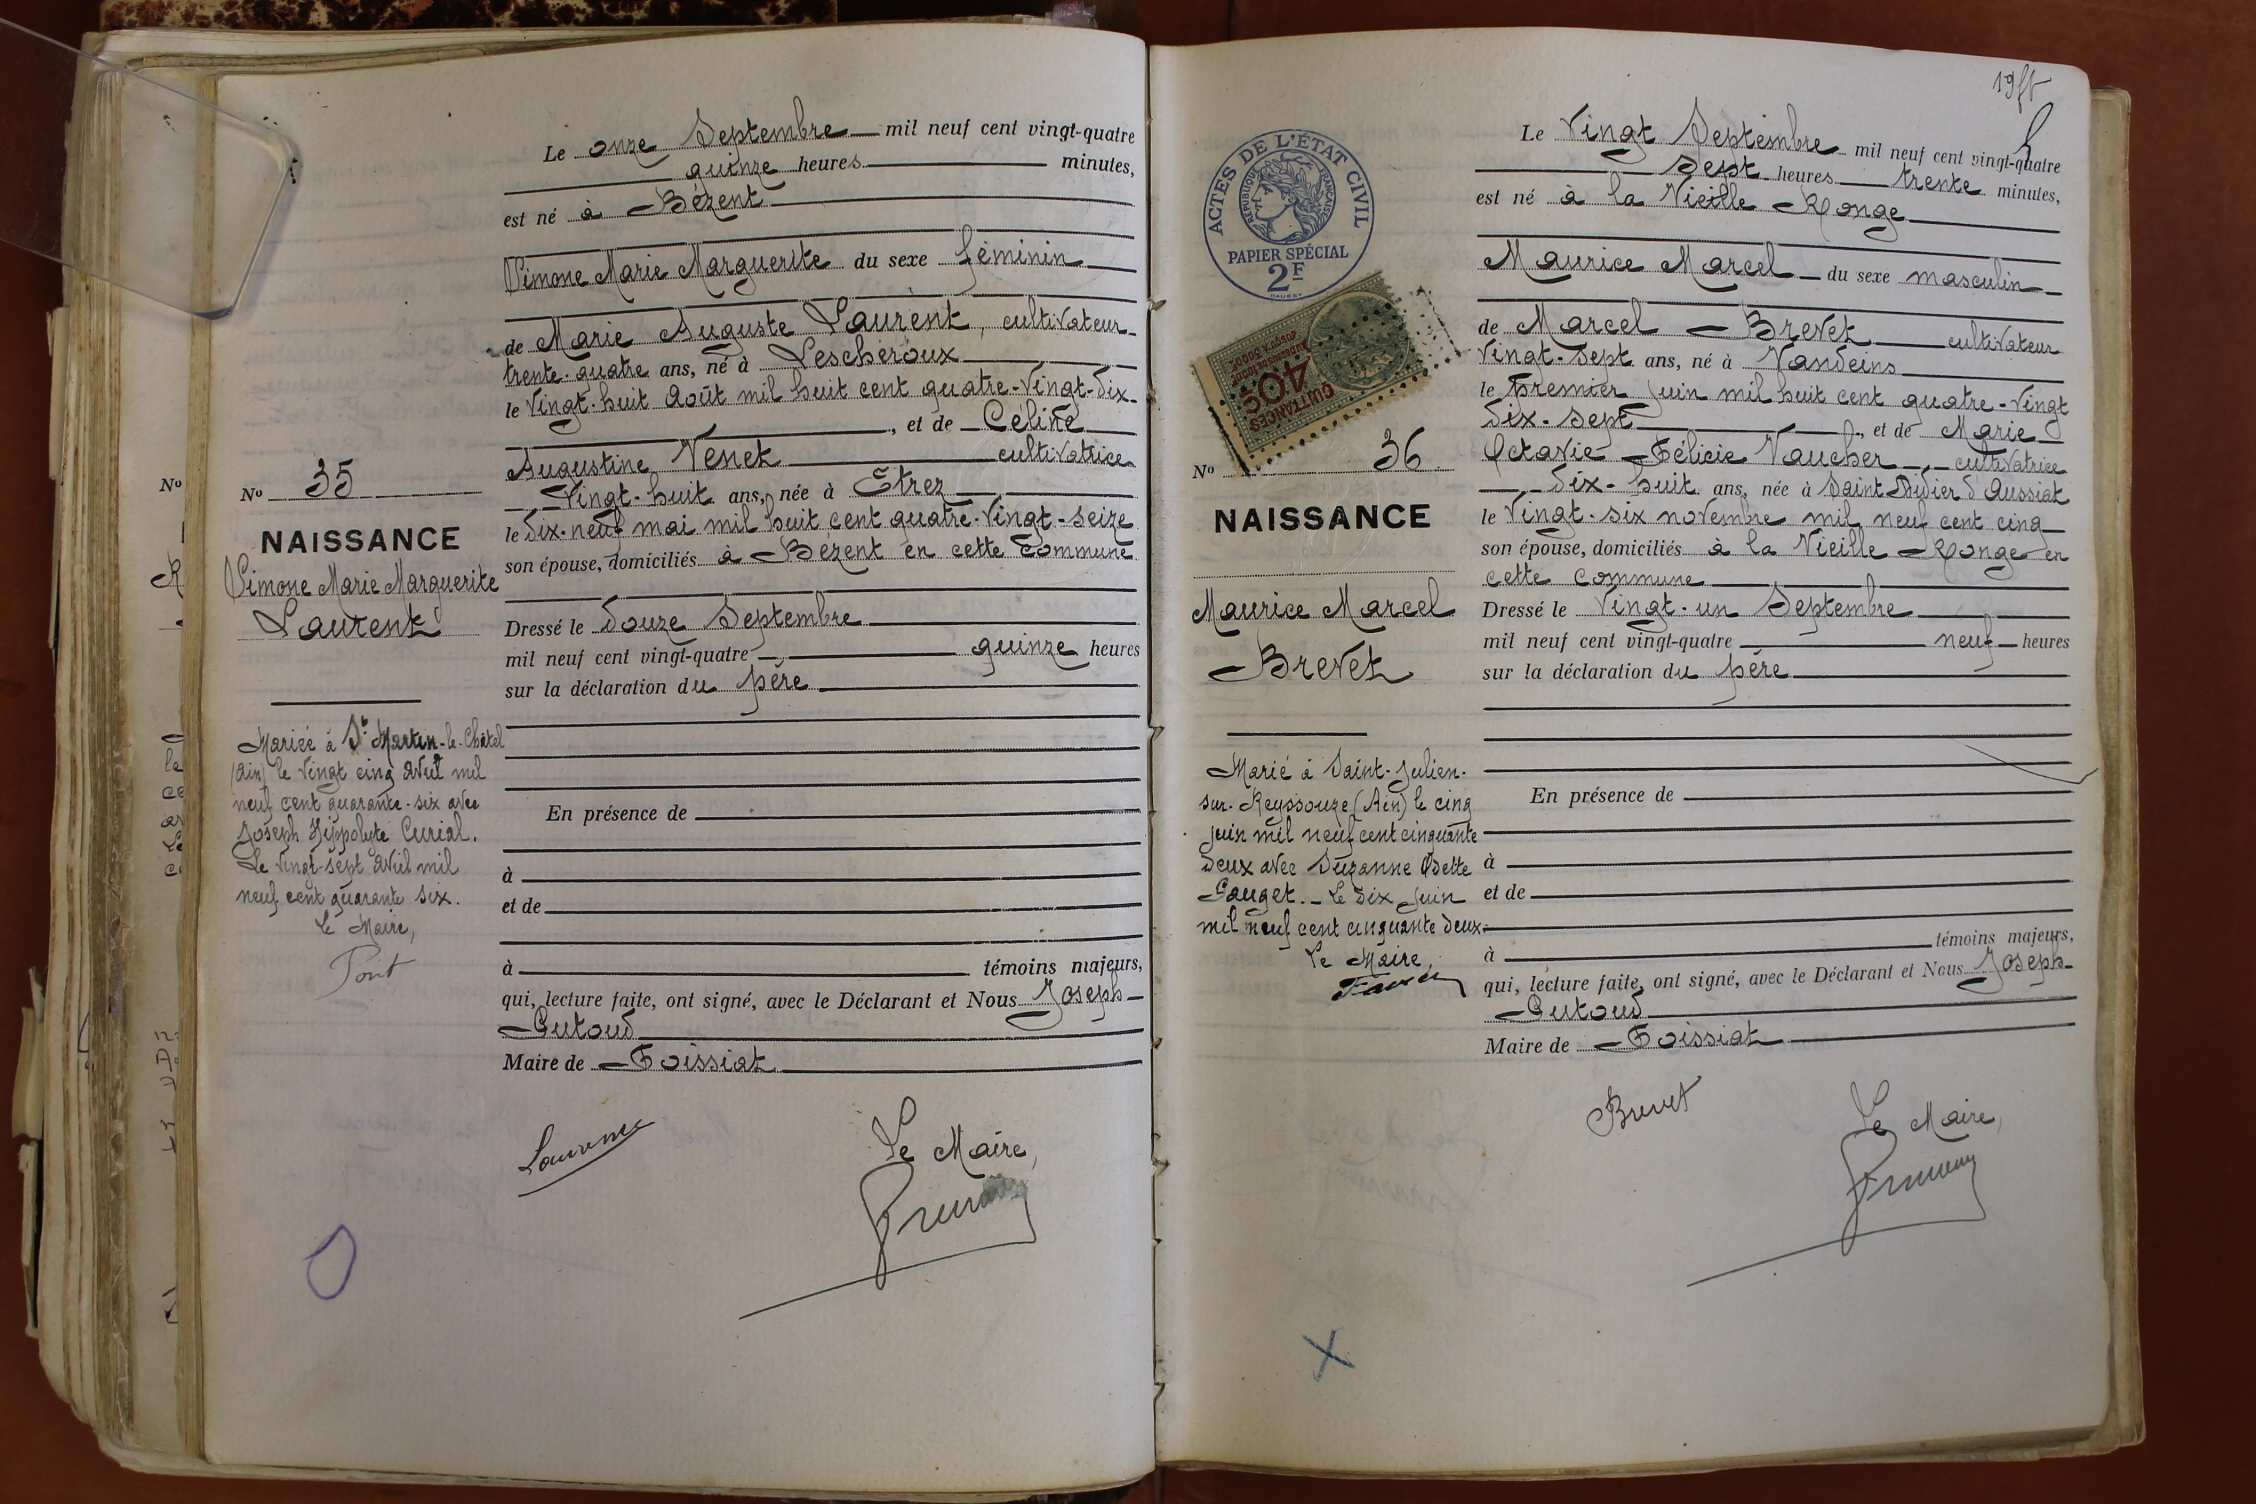 Le onze Septembre mil neuf cent vingt-quatre
quinze heures minutes,
est né à Bézent
Simone Marie Marguerite du sexe féminin
de Marie Auguste Laurent, cultivateur
trente-quatre ans, né à Lescheroux
le vingt-huit Août mil huit cent quatre-vingt-dix
, et de Céline
Augustine Venet cultivatrice
vingt-huit ans, née à Etrez
le dix-neuf mai mil huit cent quatre-vingt-seize
son épouse, domiciliés à Bézent en cette commune
Dressé le douze Septembre
mil neuf cent vingt-quatre, quinze heures
sur la déclaration du père
En présence de
à
et de
à témoins majeurs,
qui, lecture faite, ont signé, avec le Déclarant et Nous Joseph
Gutoud
Maire de Foissiat
Laurent
Le Maire,
No
No 35
NAISSANCE
Simone Marie Marguerite
Laurent
Mariée à St Martin-le-Châtel
(Ain) le vingt cinq avril mil
neuf cent quarante-six avec
Joseph Hippolyte Curial.
Le vingt-sept avril mil
neuf cent quarante six.
Le Maire,
Pont
ACTES DE L'ÉTAT CIVIL
RÉPUBLIQUE FRANÇAISE
PAPIER SPÉCIAL
2F
QUITTANCES
40c
No 36
NAISSANCE
Maurice Marcel
Brevet
Marié à Saint-Julien-
sur-Reyssouze (Ain) le cinq
juin mil neuf cent cinquante
deux avec Suzanne Odette
Gauget. Le dix juin
mil neuf cent cinquante deux.
Le Maire,
Le Vingt Septembre mil neuf cent vingt-quatre
sept heures trente minutes,
est né à la Vieille Ronge
Maurice Marcel du sexe masculin
de Marcel Brevet cultivateur
vingt-sept ans, né à Vandeins
le premier juin mil huit cent quatre-vingt
dix-sept, et de Marie
Octavie Félicie Vaucher, cultivatrice
dix-huit ans, née à Saint Didier d'Aussiat
le vingt-six novembre mil neuf cent cinq
son épouse, domiciliés à la Vieille Ronge en
cette commune
Dressé le vingt-un Septembre
mil neuf cent vingt-quatre neuf heures
sur la déclaration du père
En présence de
à
et de
à témoins majeurs,
qui, lecture faite, ont signé, avec le Déclarant et Nous Joseph
Gutoud
Maire de Foissiat
Brevet
Le Maire,